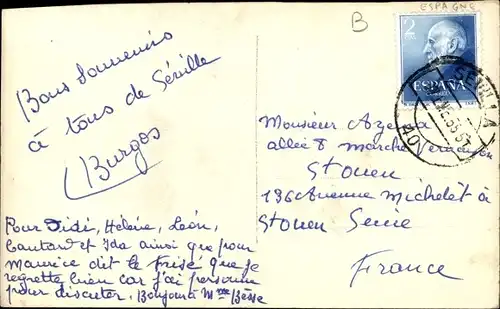 ESPAGNE
B
2
PTAS
ESPAÑA
CORREOS
SEVILLA
Bons souvenirs
à tous de Séville
Burgos
Monsieur
allée 8 marché
St Ouen
136 Avenue Michelet à
St Ouen Seine
France
Pour Didi, Hélène, Léon,
et Ida ainsi que pour
Maurice dit le Frisé que je
regrette bien car j'ai personne
pour discuter. Bonjour à Mme Besse